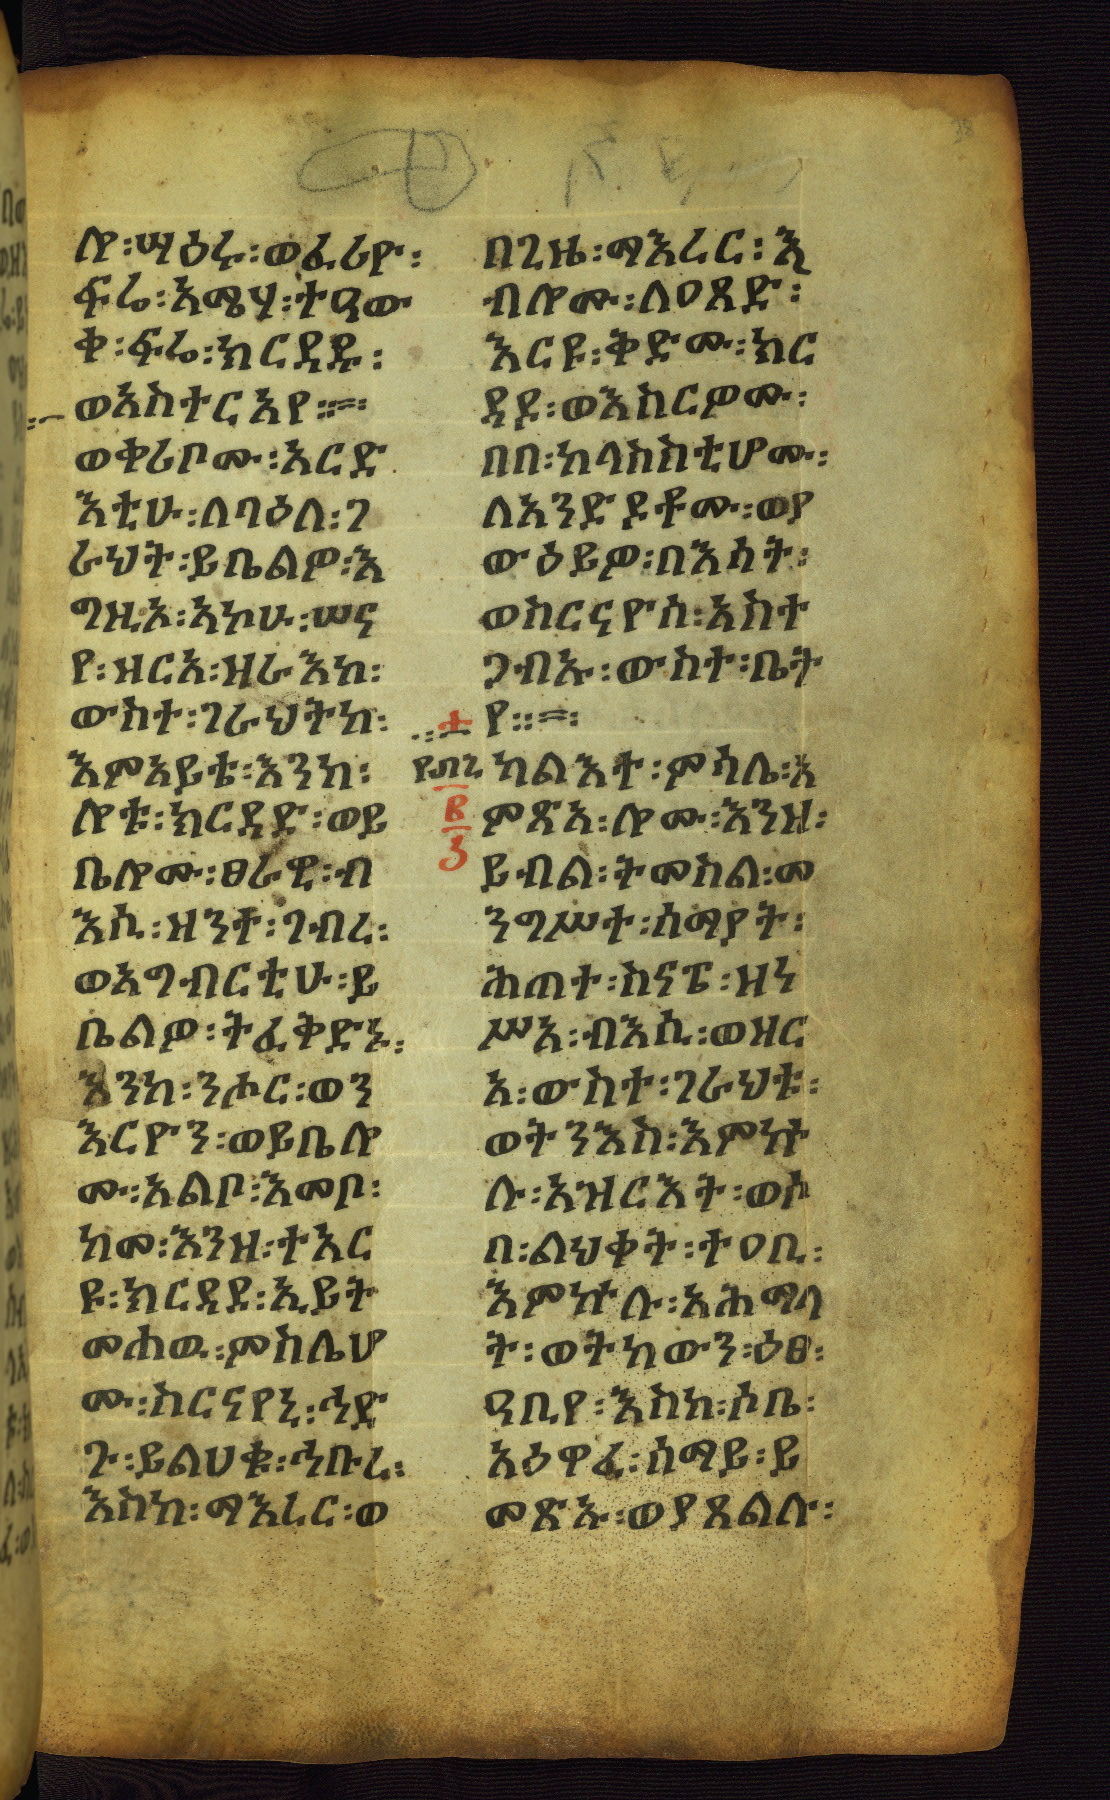 ሎ፡ሣዕሩ፡ወፈሪዮ፡
ፍሬ፡አሜሃ፡ተዐው
ቀ፡ፍሬ፡ክርዳዱ፡
ወአስተርአየ፡፡=፡
ወቀሪቦሙ፡አርድ
እቲሁ፡ለባዕለ፡ገ
ራህት፡ይቤልዎ፡እ
ግዚኦ፡አኮሁ፡ሠና
የ፡ዝርአ፡ዝራእከ፡
ውስተ፡ገራህትከ፡
እምአይቴ፡እንከ፡
ሎቱ፡ክርዳድ፡ወይ
ቤሎሙ፡ፀራዊ፡ብ
እሲ፡ዘንተ፡ገብረ፡
ወአግብርቲሁ፡ይ
ቤልዎ፡ትፈቅድኑ፡
እንከ፡ንሑር፡ወን
እርዮን፡ወይቤሎ
ሙ፡አልቦ፡እመቦ፡
ከመ፡እንዘ፡ተአር
ዩ፡ክርዳደ፡ኢይት
መሐዉ፡ምስሌሆ
ሙ፡ስርናየኒ፡ኅድ
ጉ፡ይልህቁ፡ኅቡረ፡
እስከ፡ማእረር፡ወ
በጊዜ፡ማእረር፡እ
ብሎሙ፡ለዐጸድ፡
እርዩ፡ቅድሙ፡ክር
ዳደ፡ወእስርዎሙ፡
በበ፡ከላስስቲሆሙ፡
ለአንድዶቶሙ፡ወያ
ውዕይዎ፡በእሳት፡
ወስርናዮስ፡አስተ
ጋብኡ፡ውስተ፡ቤት
የ፡፡=፡
ካልእተ፡ምሳሌ፡አ
ምጽአ፡ሎሙ፡እንዘ፡
ይብል፡ትመስል፡መ
ንግሥተ፡ሰማያት፡
ሕጠተ፡ስናፔ፡ዘነ
ሥአ፡ብእሲ፡ወዘር
አ፡ውስተ፡ገራህቱ፡
ወትንእስ፡እምኵ
ሉ፡አዝርእት፡ወሶ
በ፡ልህቀት፡ተዐቢ፡
እምኵሉ፡አሕማላ
ት፡ወትከውን፡ዕፀ፡
ዐቢየ፡እስከ፡ሶቤ፡
አዕዋፈ፡ሰማይ፡ይ
መጽኡ፡ወያጸልሉ፡